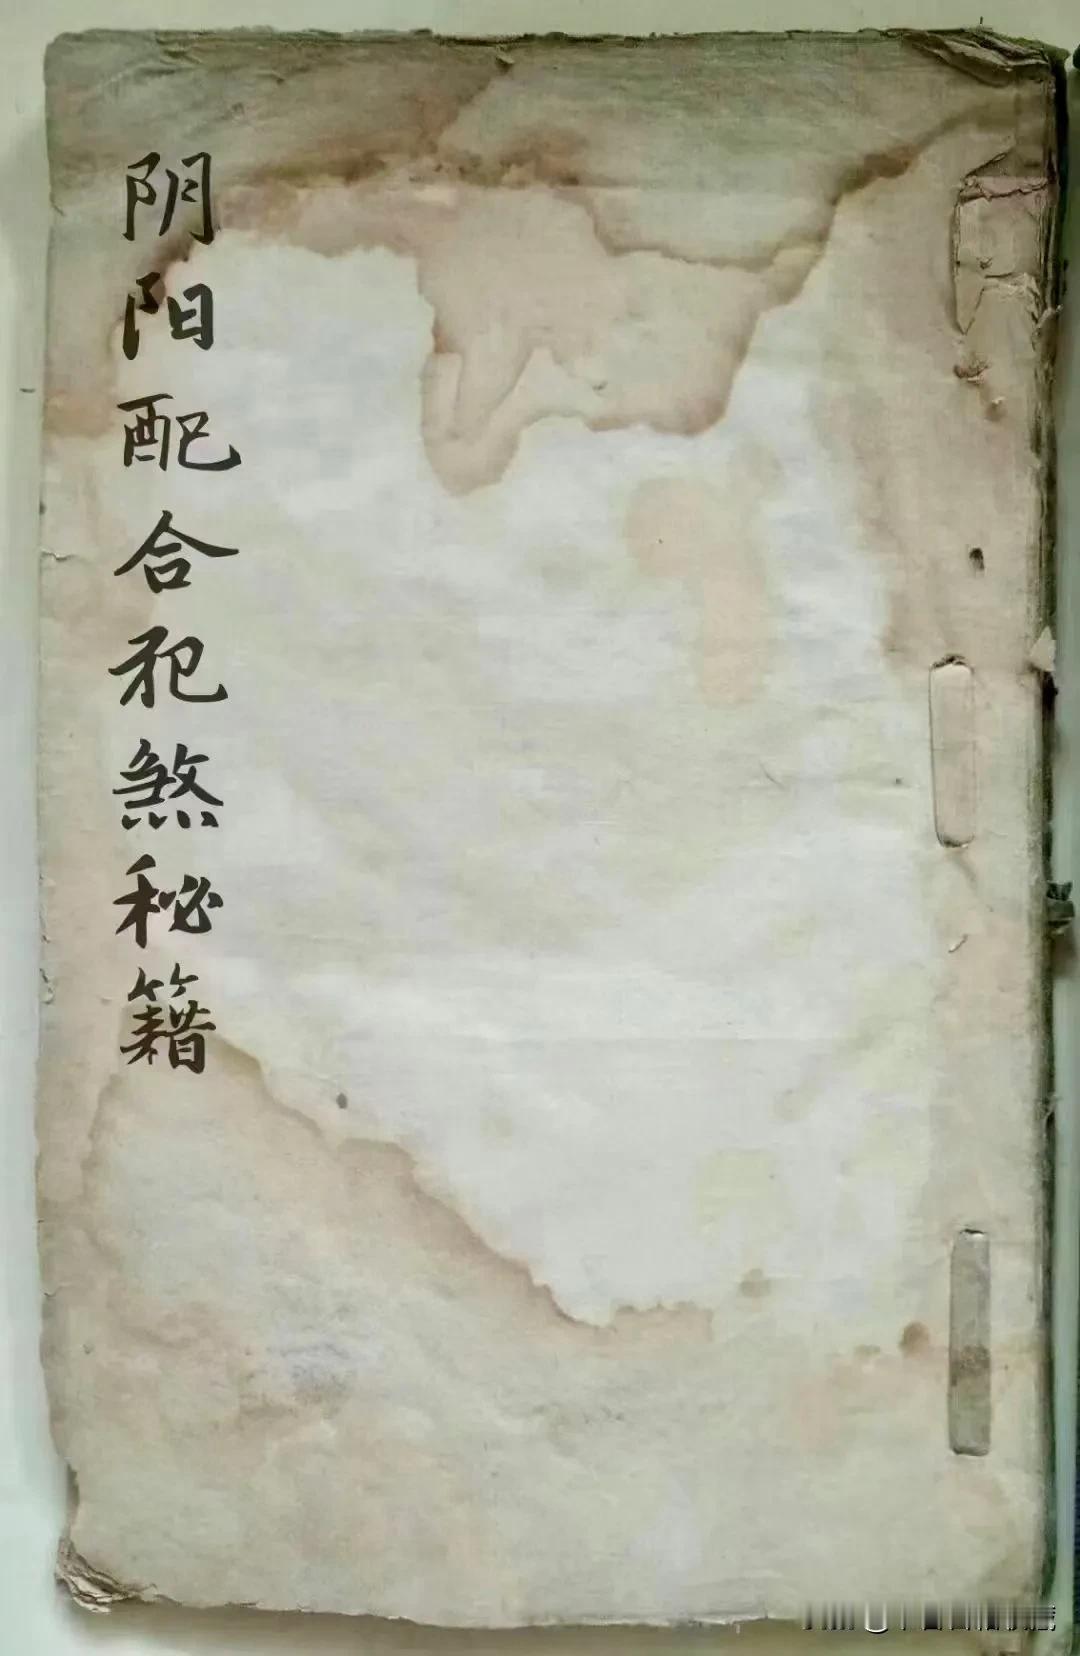 阴阳配合犯煞秘籍